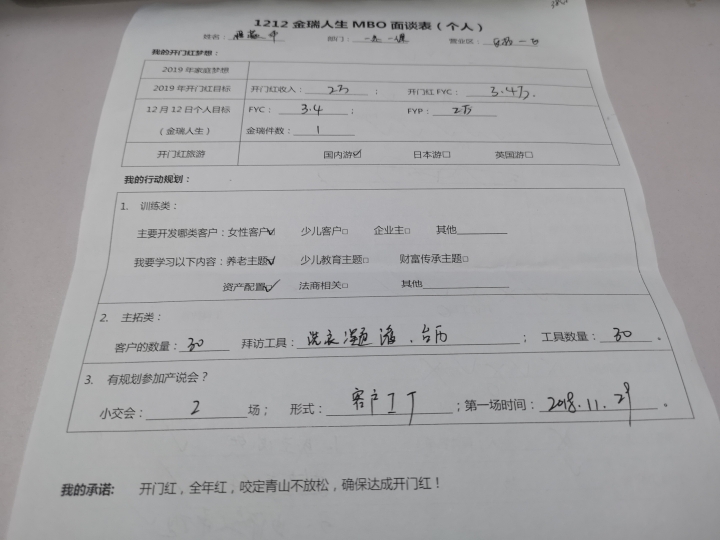 1212 金瑞人生 MBO 面谈表（个人）
姓名： 部门： 营业区：
我的开门红梦想：
2019 年家庭梦想
2019 年开门红目标 开门红收入：2万； 开门红 FYC：3.4万.
12 月 12 日个人目标 FYC：3.4； FYP：2万
（金瑞人生） 金瑞件数：1
开门红旅游 国内游☑ 日本游□ 英国游□
我的行动规划：
1. 训练类：
主要开发哪类客户：女性客户☑ 少儿客户□ 企业主□ 其他
我要学习以下内容：养老主题☑ 少儿教育主题□ 财富传承主题□
资产配置☑ 法商相关□ 其他
2. 主拓类：
客户的数量：30 拜访工具：洗衣 、台历； 工具数量：30。
3. 有规划参加产说会？
小交会：2场； 形式：客户；第一场时间：2018.11.29。
我的承诺: 开门红，全年红，咬定青山不放松，确保达成开门红！